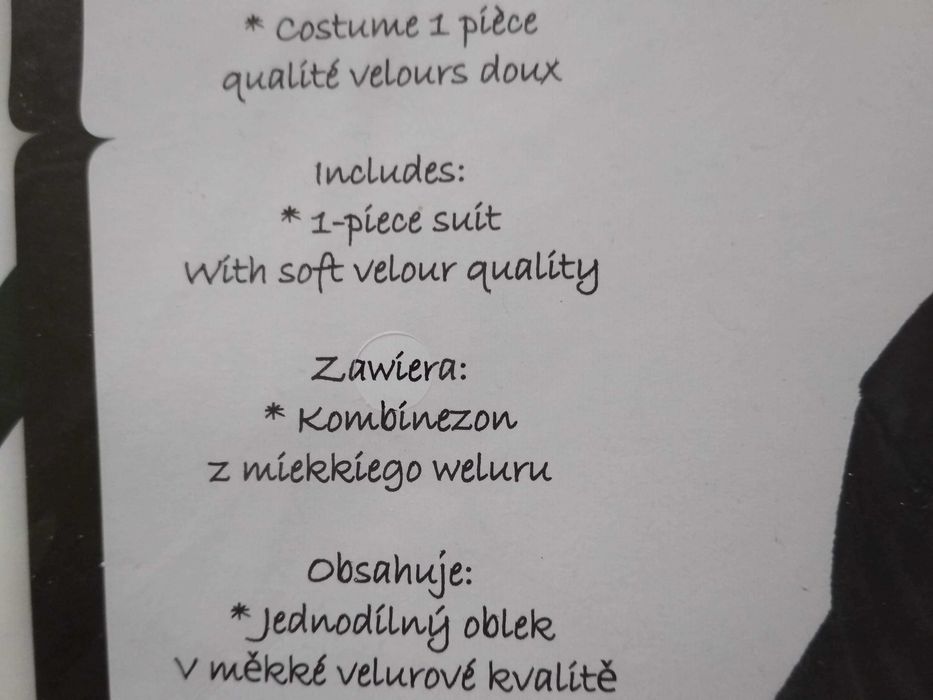 * Costume 1 pièce
qualité velours doux
Includes:
* 1-piece suit
With soft velour quality
Zawiera:
* Kombinezon
z miekkiego weluru
Obsahuje:
* Jednodílný oblek
V měkké velurové kvalitě